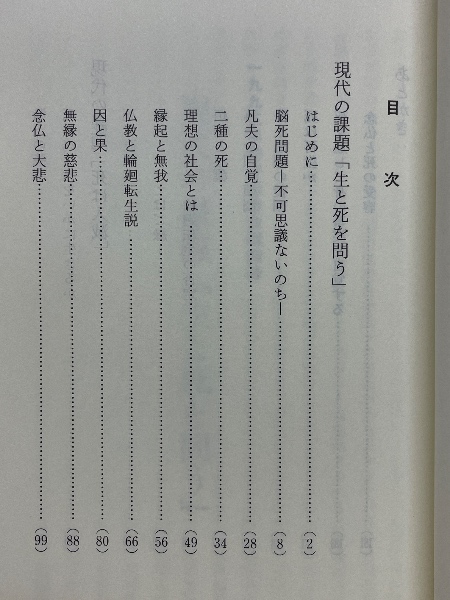 目次
現代の課題「生と死を問う」
はじめに……………………(2)
脳死問題―不可思議ないのち―……………………(8)
凡夫の自覚……………………(28)
二種の死……………………(34)
理想の社会とは……………………(49)
縁起と無我……………………(56)
仏教と輪廻転生説……………………(66)
因と果……………………(80)
無縁の慈悲……………………(88)
念仏と大悲……………………(99)